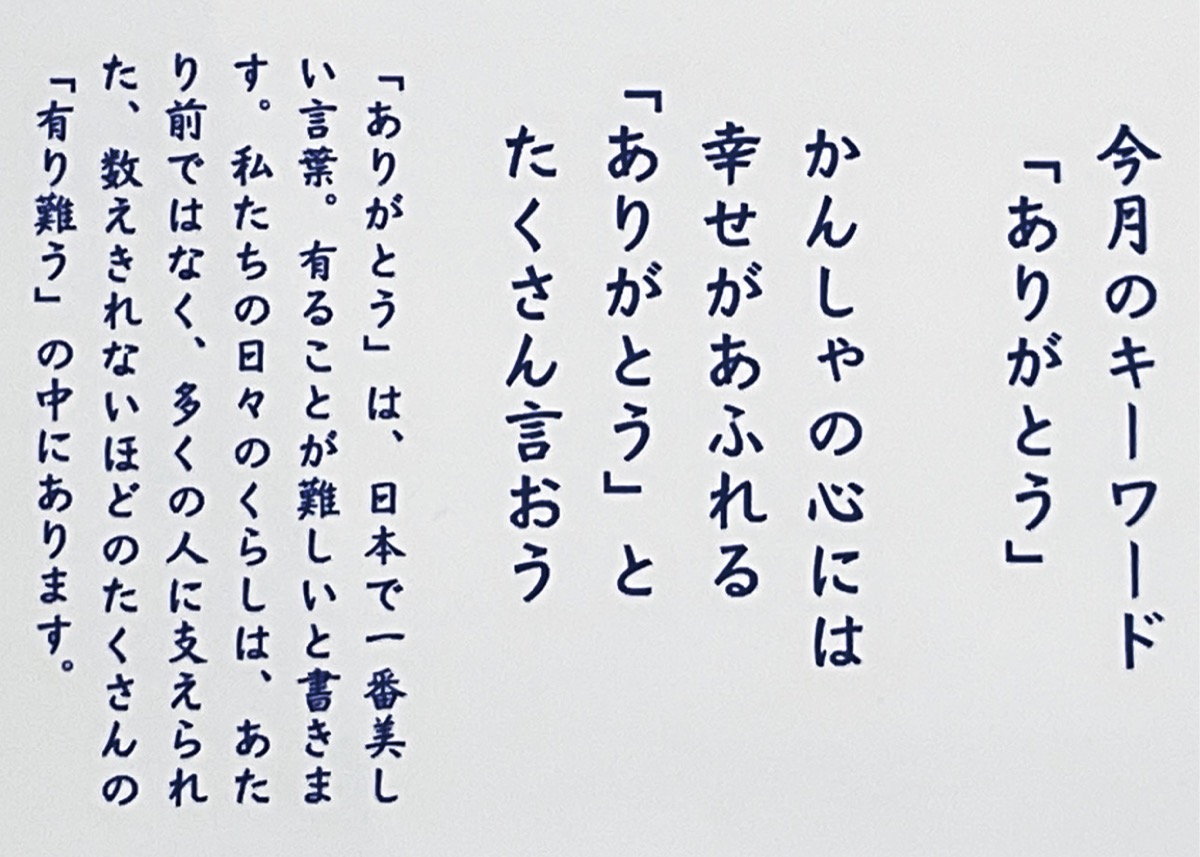 今月のキーワード
「ありがとう」
かんしゃの心には
幸せがあふれる
「ありがとう」と
たくさん言おう
「ありがとう」は、日本で一番美し
い言葉。有ることが難しいと書きま
す。私たちの日々のくらしは、あた
り前ではなく、多くの人に支えられ
た、数えきれないほどのたくさんの
「有り難う」の中にあります。